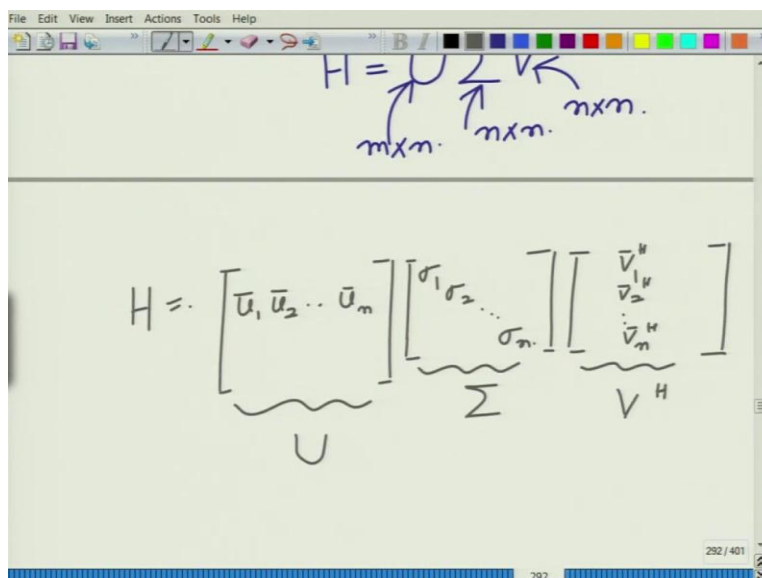 File Edit View Insert Actions Tools Help
B I
H = U Σ V
m×n. n×n. n×n.
H = [ū₁ ū₂ .. ūₙ] [σ₁ σ₂ ... σₙ] [v̄₁ᴴ
v̄₂ᴴ
⋮
v̄ₙᴴ]
U Σ Vᴴ
292 / 401
292